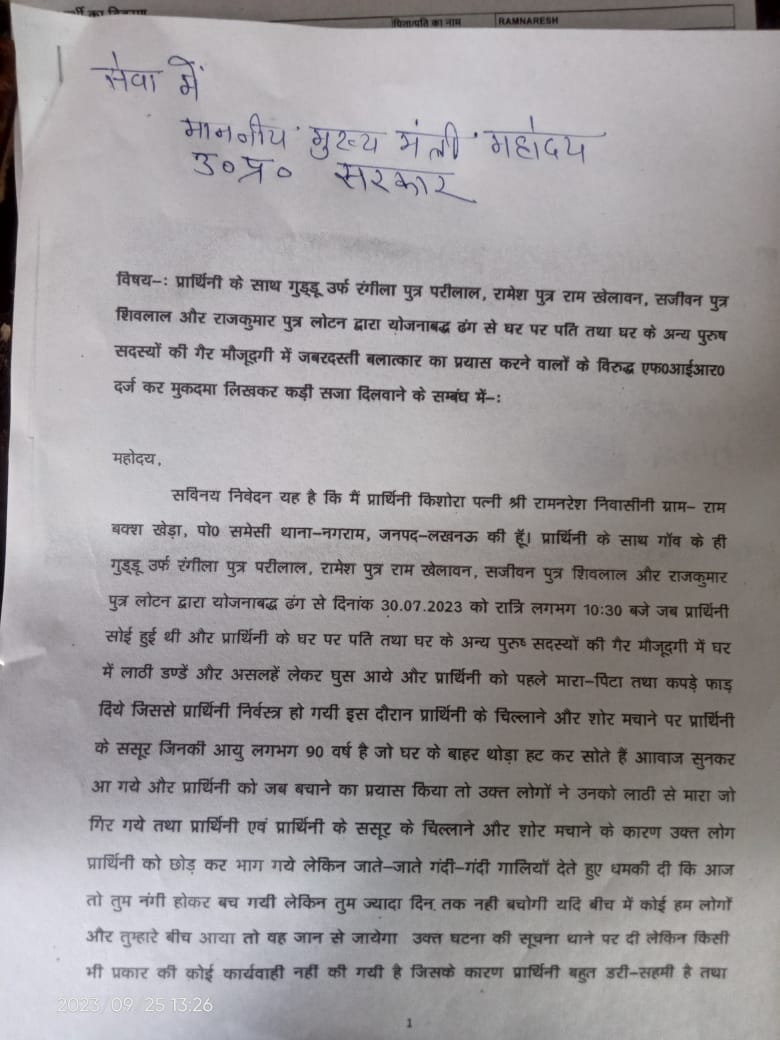 पिता/पति का नाम RAMNARESH
सेवा में
माननीय मुख्य मंत्री महोदय
उ०प्र० सरकार
विषय–: प्रार्थिनी के साथ गुड्डू उर्फ रंगीला पुत्र परीलाल, रामेश पुत्र राम खेलावन, सजीवन पुत्र
शिवलाल और राजकुमार पुत्र लोटन द्वारा योजनाबद्ध ढंग से घर पर पति तथा घर के अन्य पुरुष
सदस्यों की गैर मौजूदगी में जबरदस्ती बलात्कार का प्रयास करने वालों के विरुद्ध एफ0आई0आर0
दर्ज कर मुकदमा लिखकर कड़ी सजा दिलवाने के सम्बंध में–:
महोदय,
सविनय निवेदन यह है कि मैं प्रार्थिनी किशोरा पत्नी श्री रामनरेश निवासीनी ग्राम– राम
बक्श खेड़ा, पो0 समेसी थाना–नगराम, जनपद–लखनऊ की हूँ। प्रार्थिनी के साथ गॉव के ही
गुड्डू उर्फ रंगीला पुत्र परीलाल, रामेश पुत्र राम खेलावन, सजीवन पुत्र शिवलाल और राजकुमार
पुत्र लोटन द्वारा योजनाबद्ध ढंग से दिनांक 30.07.2023 को रात्रि लगभग 10:30 बजे जब प्रार्थिनी
सोई हुई थी और प्रार्थिनी के घर पर पति तथा घर के अन्य पुरुष सदस्यों की गैर मौजूदगी में घर
में लाठी डण्डें और असलहें लेकर घुस आये और प्रार्थिनी को पहले मारा–पिटा तथा कपड़े फाड़
दिये जिससे प्रार्थिनी निर्वस्त्र हो गयी इस दौरान प्रार्थिनी के चिल्लाने और शोर मचाने पर प्रार्थिनी
के ससूर जिनकी आयु लगभग 90 वर्ष है जो घर के बाहर थोड़ा हट कर सोते हैं आावाज सुनकर
आ गये और प्रार्थिनी को जब बचाने का प्रयास किया तो उक्त लोगों ने उनको लाठी से मारा जो
गिर गये तथा प्रार्थिनी एवं प्रार्थिनी के ससूर के चिल्लाने और शोर मचाने के कारण उक्त लोग
प्रार्थिनी को छोड़ कर भाग गये लेकिन जाते–जाते गंदी–गंदी गालियॉ देते हुए धमकी दी कि आज
तो तुम नंगी होकर बच गयी लेकिन तुम ज्यादा दिन तक नही बचोगी यदि बीच में कोई हम लोगों
और तुम्हारे बीच आया तो वह जान से जायेगा उक्त घटना की सूचना थाने पर दी लेकिन किसी
भी प्रकार की कोई कार्यवाही नहीं की गयी है जिसके कारण प्रार्थिनी बहुत डरी–सहमी है तथा
2023/09/25 13:26
1